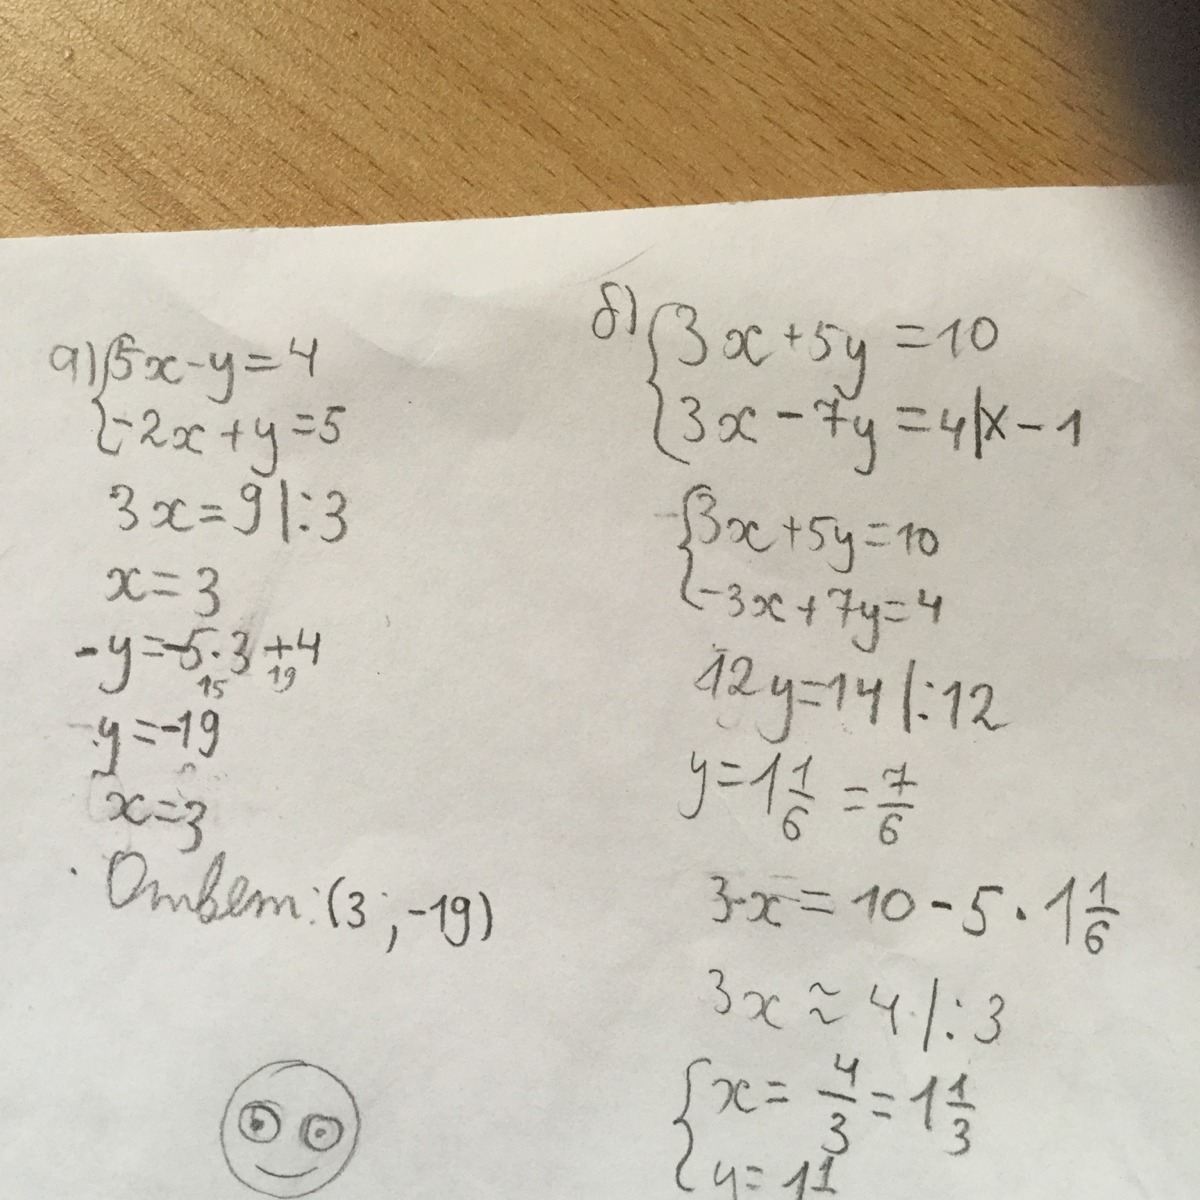 а) {5x-y=4
{-2x+y=5
3x=9|:3
x=3
-y=-5·3+4
15 19
y=-19
x=3
Ответ: (3; -19)
б) {3x+5y=10
{3x-7y=4|x-1
{3x+5y=10
{-3x+7y=4
12y=14|:12
y=1 1/6 = 7/6
3·x=10-5·1 1/6
3x≈4|:3
{x=4/3=1 1/3
{y=1 1